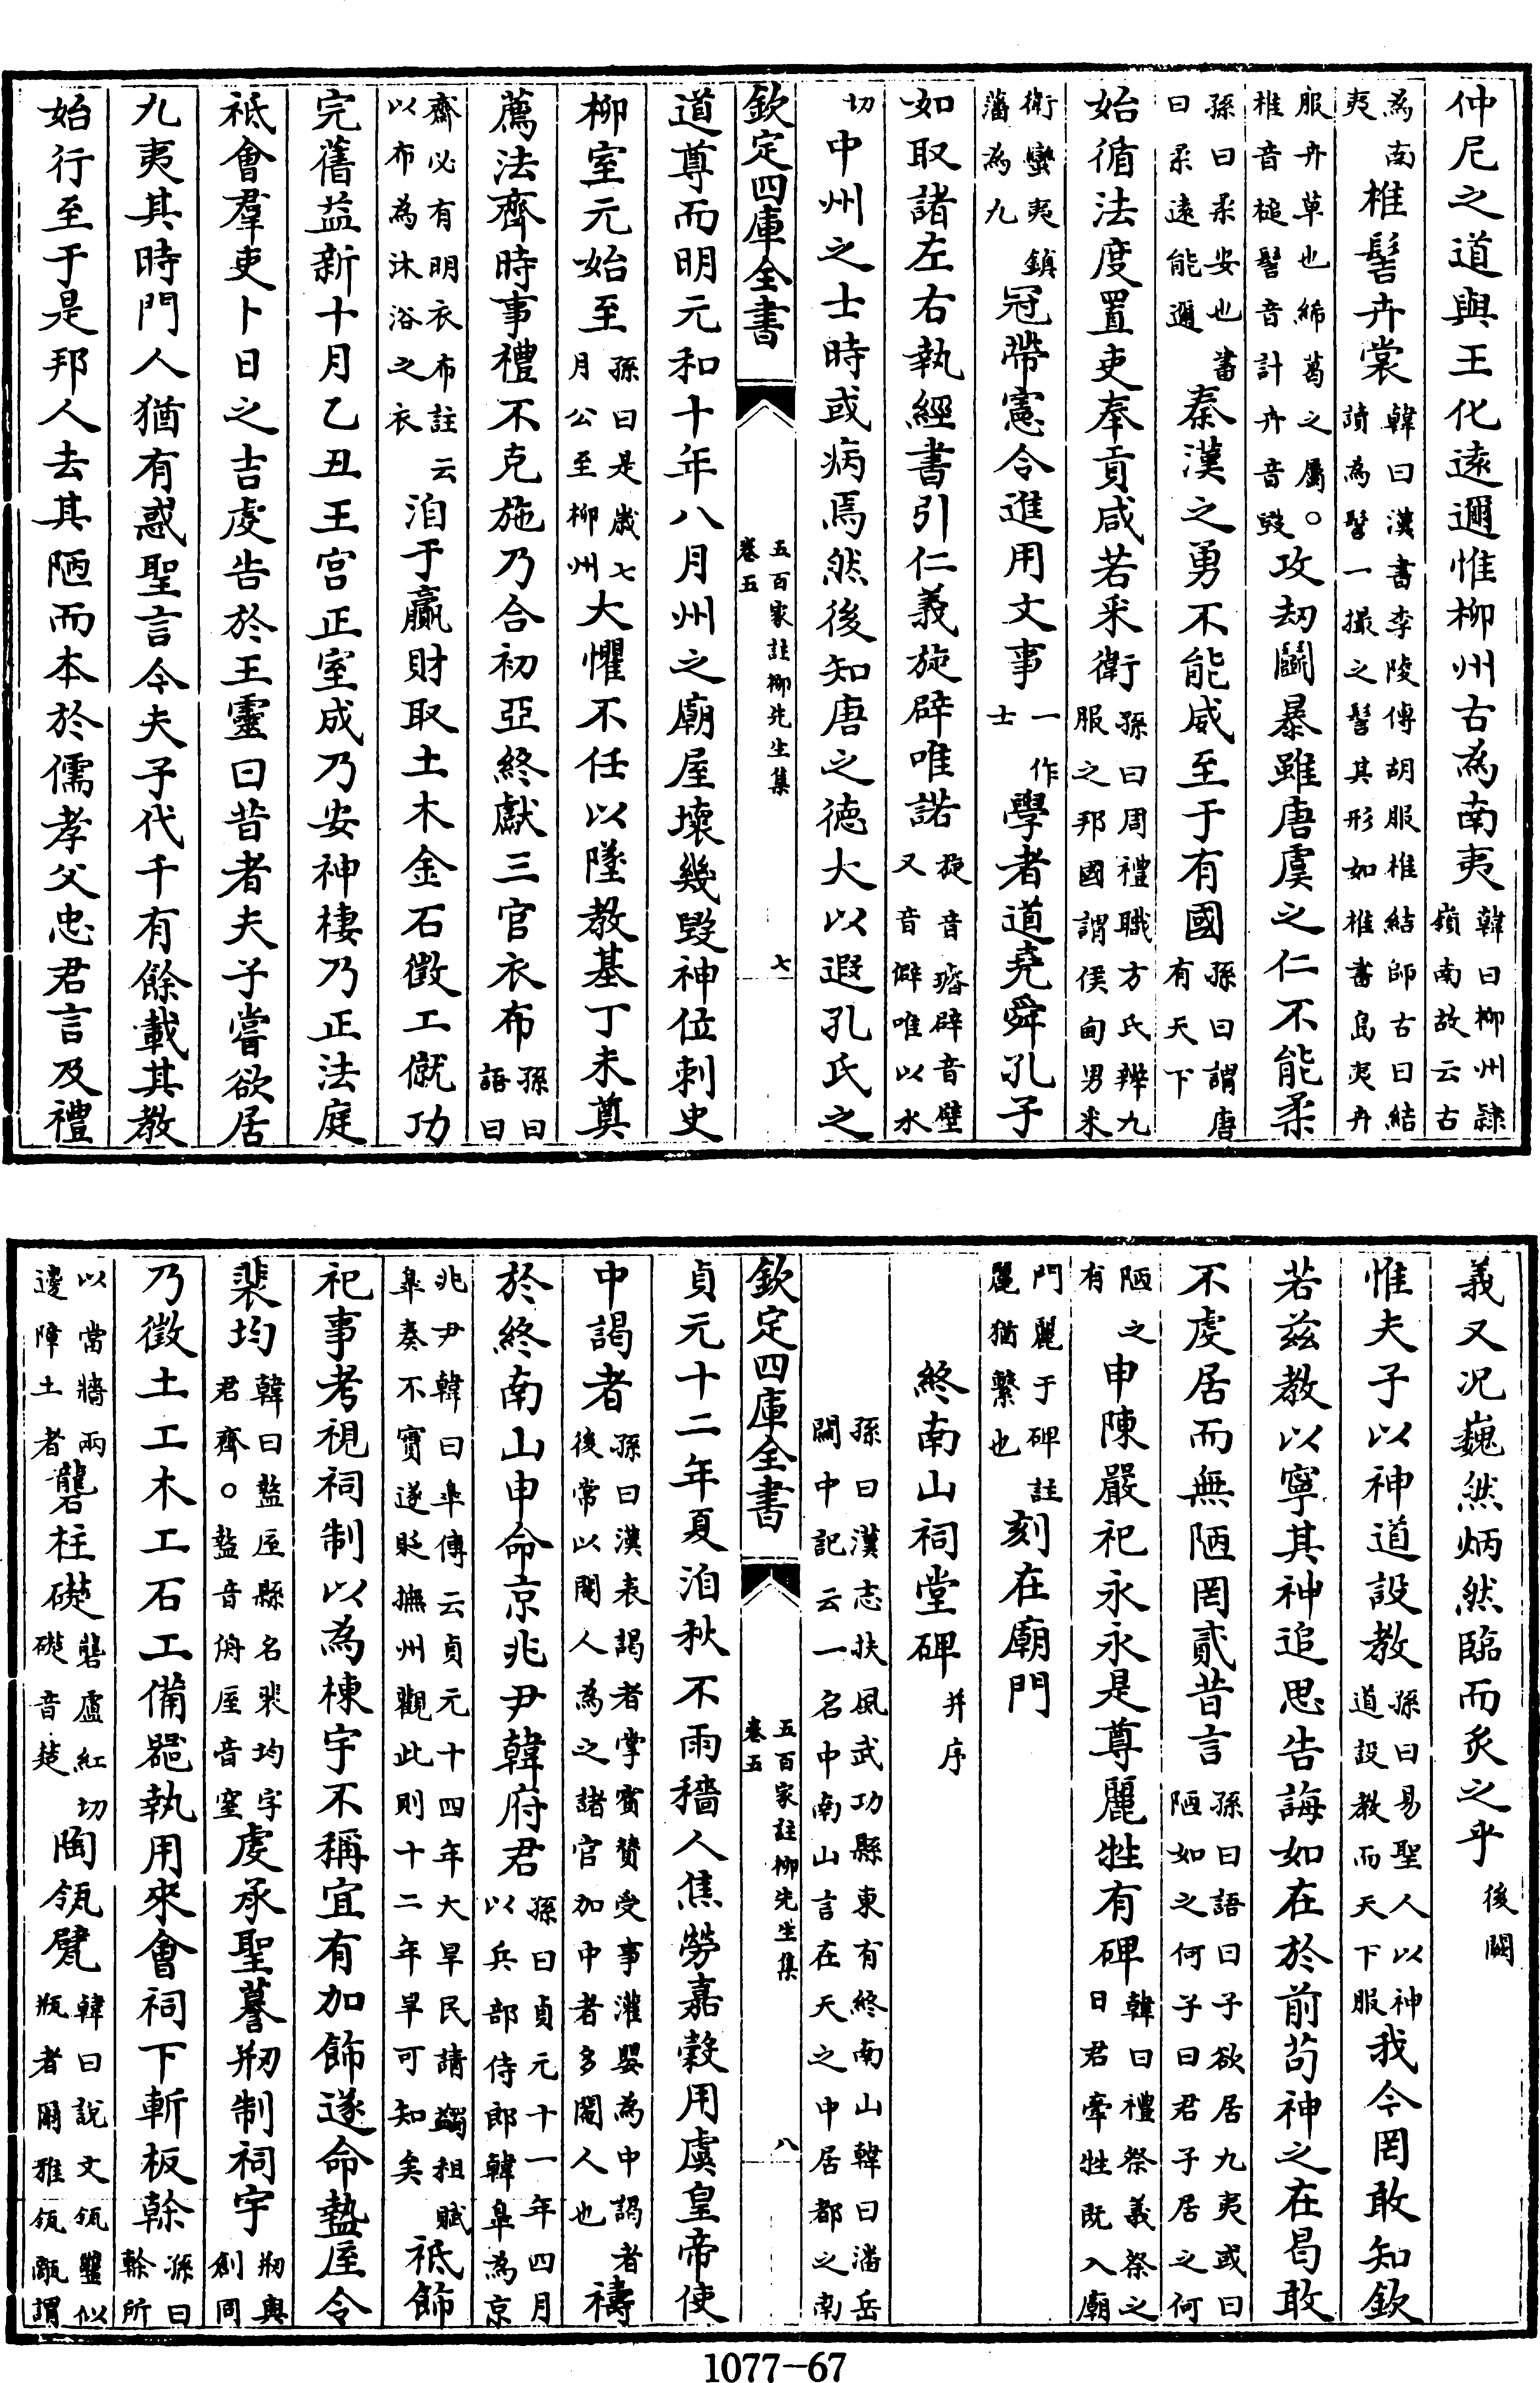 仲尼之道與王化遠邇惟柳州古為南夷韓曰柳州隸嶺南故云古
為南夷椎髻卉裳韓曰漢書李陵傳胡服椎結師古曰結讀為髻一撮之髻其形如椎書島夷卉
服卉草也絺葛之屬○椎音槌髻音計卉音毀攻劫鬭暴雖唐虞之仁不能柔
孫曰柔安也書曰柔遠能邇秦漢之勇不能威至于有國孫曰謂唐有天下
始循法度置吏奉貢咸若采衛孫曰周禮職方氏辨九服之邦國謂侯甸男采
衛蠻夷鎮藩為九冠帶憲令進用文事一作士學者道堯舜孔子
如取諸左右執經書引仁義旋辟唯諾旋音璿辟音壁又音僻唯以水
切中州之士時或病焉然後知唐之德大以遐孔氏之
欽定四庫全書 五百家註柳先生集 卷五 七
道尊而明元和十年八月州之廟屋壞幾毀神位刺史
柳室元始至孫曰是歲七月公至柳州大懼不任以墜教基丁未奠
薦法齊時事禮不克施乃合初亞終獻三官衣布孫曰語曰
齋必有明衣布註云以布為沐浴之衣洎于羸財取土木金石徵工僦功
完舊益新十月乙丑王宮正室成乃安神棲乃正法庭
祗會羣吏卜日之吉虔告於王靈曰昔者夫子嘗欲居
九夷其時門人猶有惑聖言今夫子代千有餘載其教
始行至于是邦人去其陋而本於儒孝父忠君言及禮
義又况巍然炳然臨而炙之乎後闕
惟夫子以神道設教孫曰易聖人以神道設教而天下服我今罔敢知欽
若兹教以寧其神追思告誨如在於前苟神之在曷敢
不虔居而無陋罔貳昔言孫曰語曰子欲居九夷或曰陋如之何子曰君子居之何
陋之有申陳嚴祀永永是尊麗牲有碑韓曰禮祭義祭之日君牽牲既入廟
門麗于碑註麗猶繫也刻在廟門
終南山祠堂碑并序
孫曰漢志扶風武功縣東有終南山韓曰潘岳關中記云一名中南山言在天之中居都之南
欽定四庫全書 五百家註柳先生集 卷五 八
貞元十二年夏洎秋不雨穡人焦勞嘉穀用虞皇帝使
中謁者孫曰漢表謁者掌賓贊受事灌嬰為中謁者後常以閹人為之諸官加中者多閹人也禱
於終南山申命京兆尹韓府君孫曰貞元十一年四月以兵部侍郎韓臯為京
兆尹韓曰臯傳云貞元十四年大旱民請蠲租賦臯奏不實遂貶撫州觀此則十二年旱可知矣祗飾
祀事考視祠制以為棟宇不稱宜有加飾遂命盩厔令
裴均韓曰盩厔縣名裴均字君齊○盩音舟厔音窒虔承聖謩刱制祠宇刱與創同
乃徵土工木工石工備器執用來會祠下斬板榦孫曰榦所
以當牆兩邊障土者礱柱礎礱盧紅切礎音楚陶瓴甓韓曰說文瓴罋似瓶者爾雅瓴甋謂
1077-67